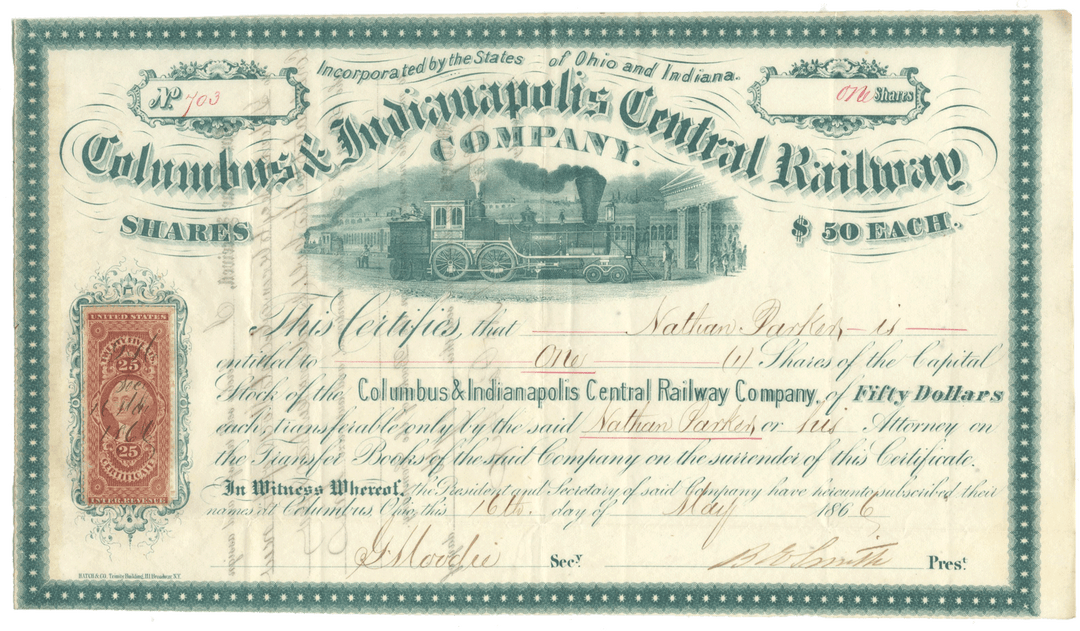 Incorporated by the States of Ohio and Indiana.
No 703
One Shares
Columbus & Indianapolis Central Railway
COMPANY.
SHARES
$ 50 EACH.
UNITED STATES
25
25
CERTIFICATE
INTER. REVENUE
This Certifies, that Nathan Parker is
entitled to One (1) Shares of the Capital
Stock of the Columbus & Indianapolis Central Railway Company, of Fifty Dollars
each, transferable only by the said Nathan Parker, or his Attorney on
the Transfer Books of the said Company on the surrender of this Certificate.
In Witness Whereof, the President and Secretary of said Company have hereunto subscribed their
names at Columbus, Ohio, this 16th. day of May 1866
J Moodie Secy. B E Smith Prest.